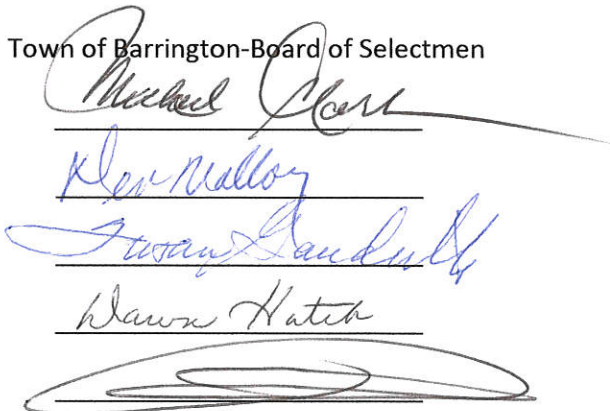 Town of Barrington-Board of Selectmen
Michael Clark
Malloy
Susan Gaudiello
Dawn Hatch